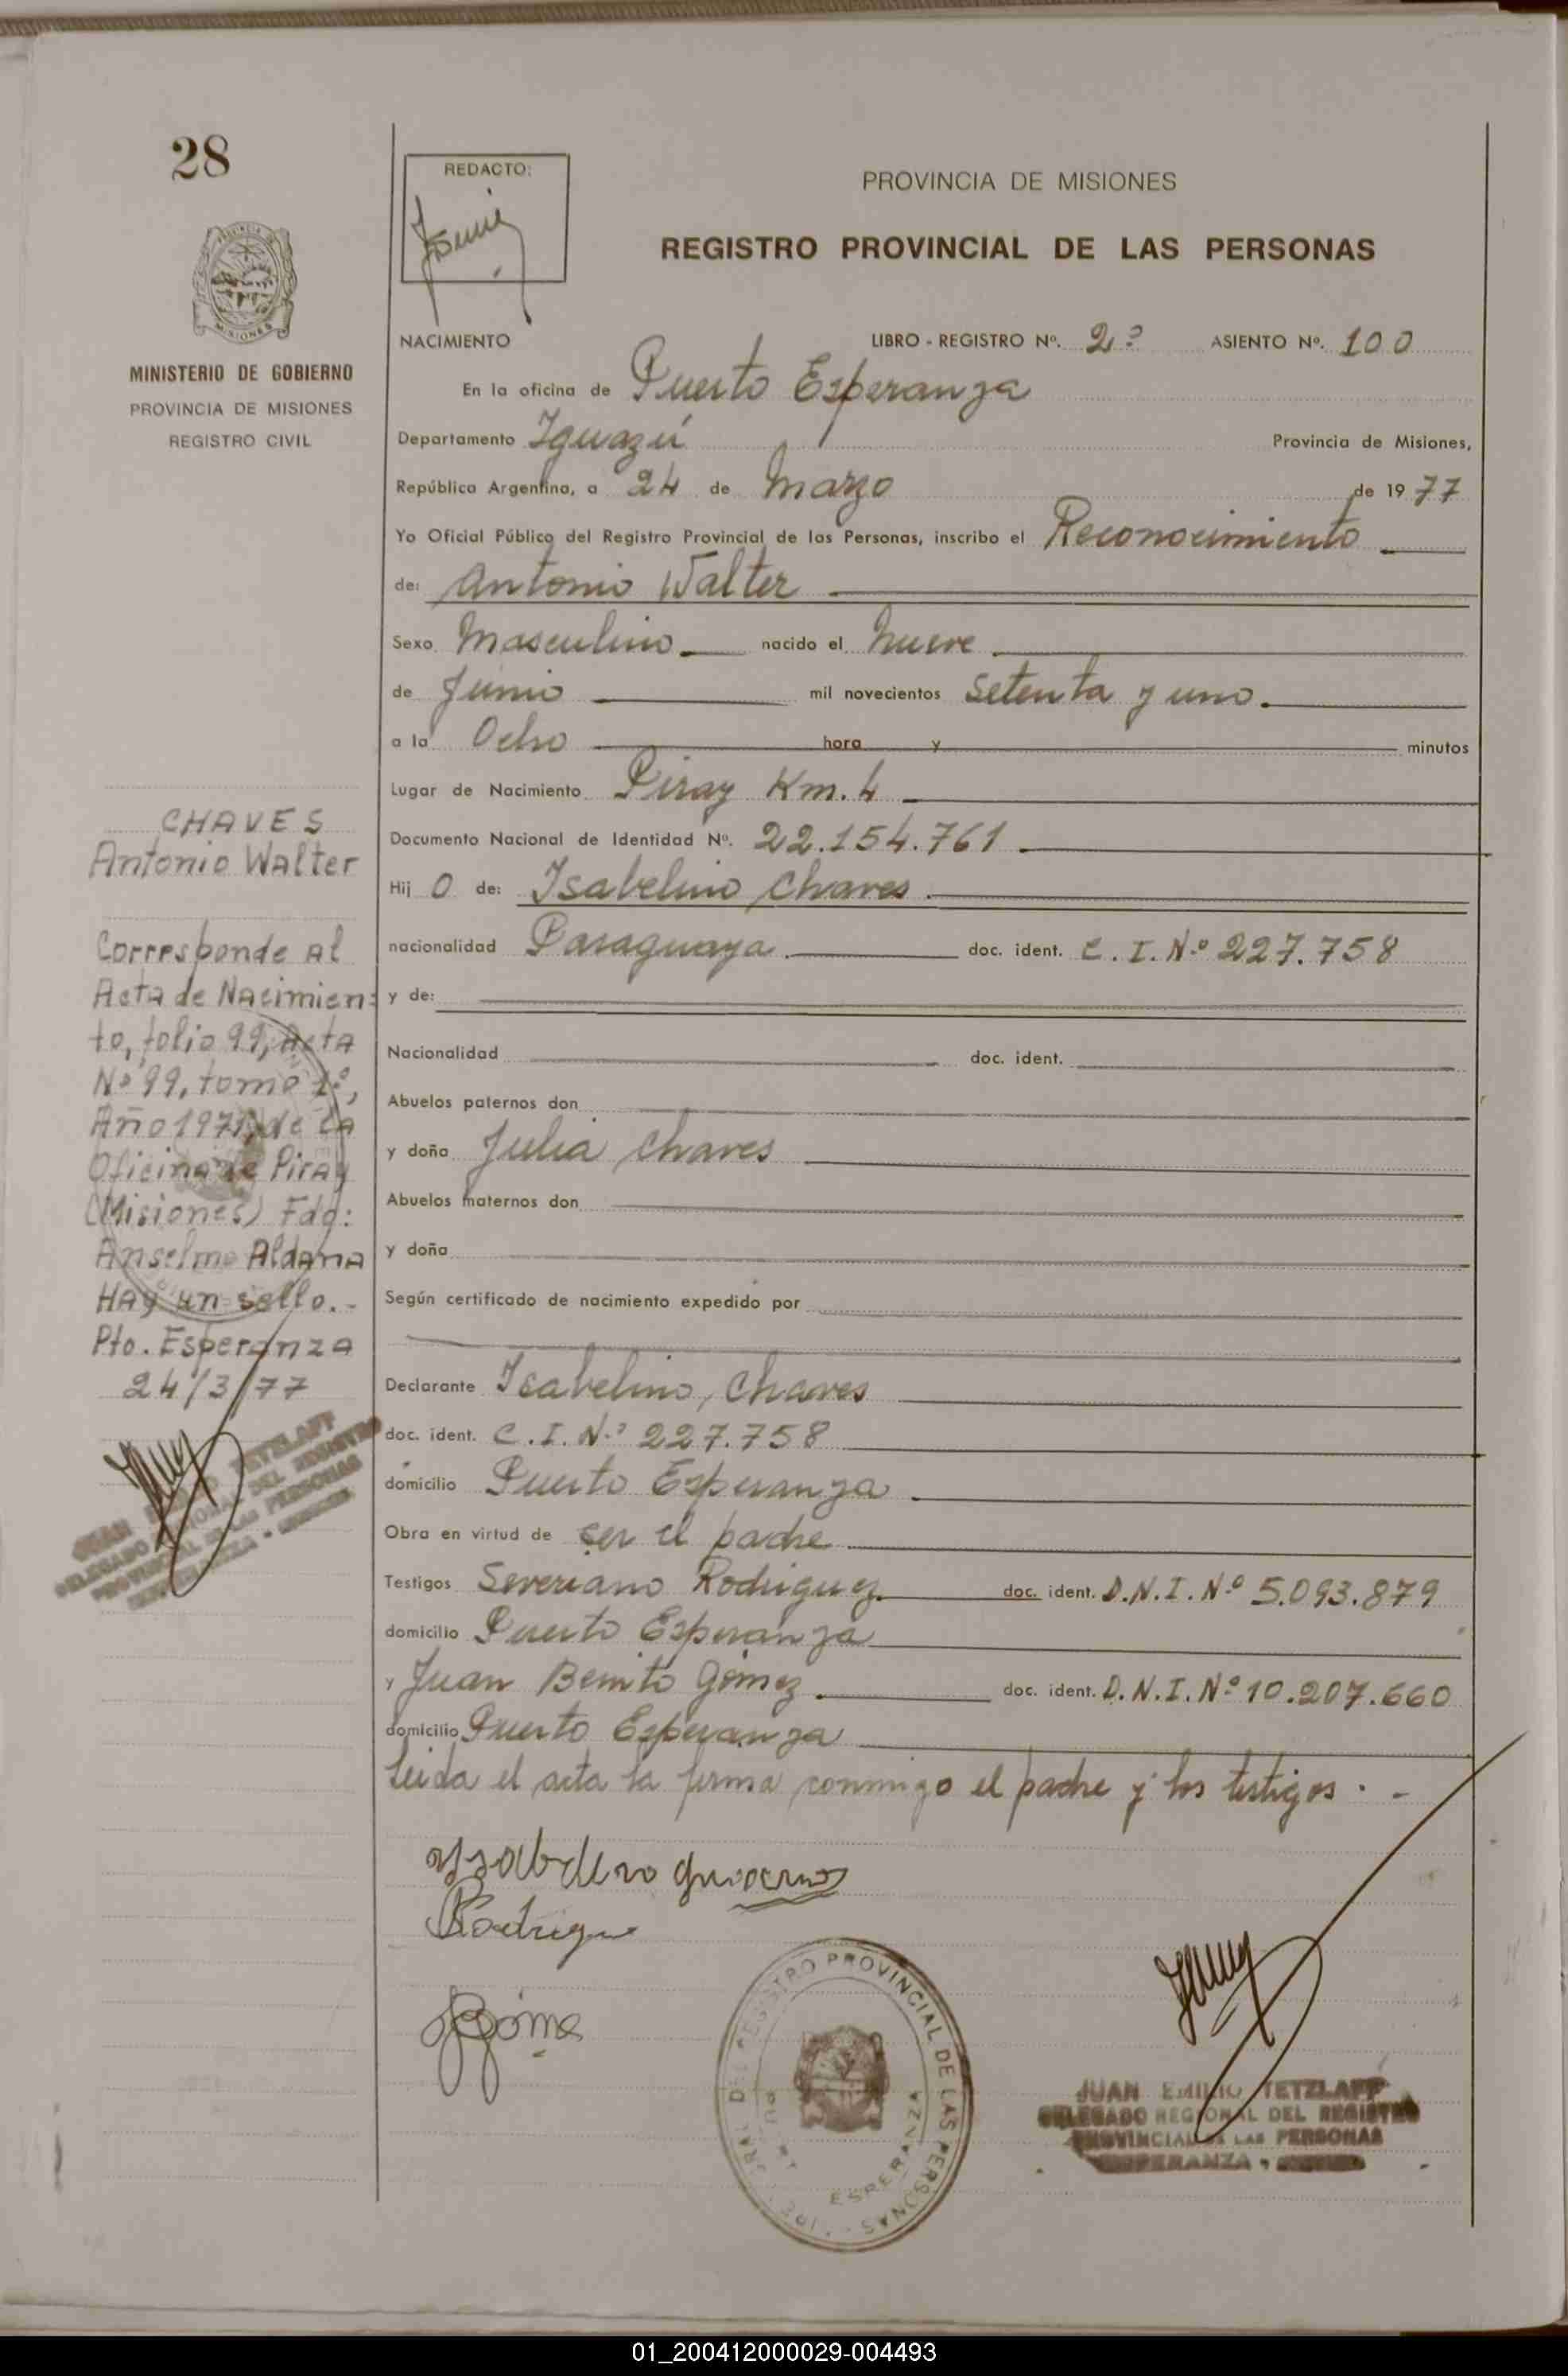 28
REDACTO:
PROVINCIA DE MISIONES
REGISTRO PROVINCIAL DE LAS PERSONAS
MISIONES
MINISTERIO DE GOBIERNO
PROVINCIA DE MISIONES
REGISTRO CIVIL
NACIMIENTO LIBRO - REGISTRO Nº. 2º ASIENTO Nº. 100
En la oficina de Puerto Esperanza
Departamento Iguazú Provincia de Misiones,
República Argentina, a 24 de Marzo de 1977
Yo Oficial Público del Registro Provincial de las Personas, inscribo el Reconocimiento
de: Antonio Walter
Sexo Masculino nacido el Nueve
de Junio mil novecientos setenta y uno.
a la Ocho hora y minutos
Lugar de Nacimiento Piray Km. 4
Documento Nacional de Identidad Nº. 22.154.761
Hij O de: Isabelino Chaves
nacionalidad Paraguaya doc. ident. C.I.Nº 227.758
y de:
Nacionalidad doc. ident.
Abuelos paternos don
y doña Julia Chaves
Abuelos maternos don
y doña
Según certificado de nacimiento expedido por
Declarante Isabelino, Chaves
doc. ident. C.I.Nº 227.758
domicilio Puerto Esperanza
Obra en virtud de ser el padre
Testigos Severiano Rodriguez doc. ident. D.N.I.Nº 5.093.879
domicilio Puerto Esperanza
y Juan Benito Gómez doc. ident. D.N.I.Nº 10.207.660
domicilio Puerto Esperanza
Leida el acta la firma conmigo el padre y los testigos.-
CHAVES
Antonio Walter
Corresponde Al
Acta de Nacimien-
to, folio 99, Acta
Nº 99, tomo 1º,
Año 1971, de la
Oficina de Piray
(Misiones) Fdo:
Anselmo Aldana
Hay un sello.-
Pto. Esperanza
24/3/77
TETZLAFF
DEL REGISTRO
PROVINCIAL DE LAS PERSONAS
Rodrigue
REGISTRO PROVINCIAL DE LAS PERSONAS
ESPERANZA
JUAN EMILIO TETZLAFF
DELEGADO REGIONAL DEL REGISTRO
PROVINCIAL DE LAS PERSONAS
ESPERANZA
01_200412000029-004493